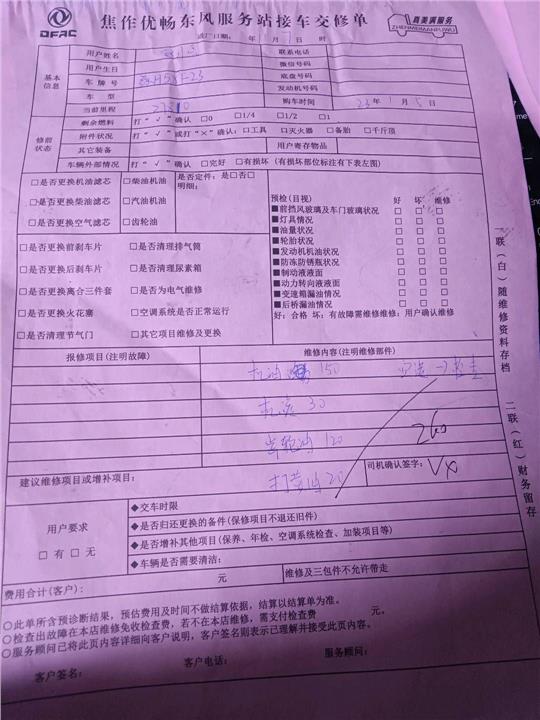 DFAC
焦作优畅东风服务站接车交修单
真美满服务
ZHENMEIMANFUWU
出厂日期: 年 月 7 日 时
基本信息
用户姓名
联系电话
用户生日
微信号码
车牌号
底盘号码
车型
发动机号码
当前里程
购车时间 23 年 1 月 5 日
修前状态
剩余燃料 打“√”确认 □0 □1/4 □1/2 □1
附件状况 打“√”或打“×”确认:□工具 □灭火器 □备胎 □千斤顶
其它装备
用户寄存物品
车辆外部情况 打“√”确认 □完好 □有损坏(有损坏部位标注有下表左图)
□是否更换机油滤芯 □柴油机油 是否定件:是□否□
明细:
□是否更换柴油滤芯 □汽油机油
□是否更换空气滤芯 □齿轮油
□是否更换前刹车片 □是否清理排气筒
□是否更换后刹车片 □是否清理尿素箱
□是否更换离合三件套 □是否为电气维修
□是否更换火花塞 □空调系统是否正常运行
□是否清理节气门 □其它项目维修及更换
预检(目视) 好 坏 维修
■前挡风玻璃及车门玻璃状况 □ □ □
■灯具情况 □ □ □
■油量状况 □ □ □
■轮胎状况 □ □ □
■发动机机油状况 □ □ □
■防冻防锈瓶状况 □ □ □
■制动液液面 □ □ □
■动力转向液液面 □ □ □
■变速箱漏油情况 □ □ □
■后桥漏油情况 □ □ □
好:合格 坏:有故障需维修维修:用户确认维修
报修项目(注明故障) 维修内容(注明维修部件)
机油 150
机滤 30
齿轮油 120
260
打黄油 20
建议维修项目或增补项目:
司机确认签字:
用户要求
□ 有 □ 无
◆交车时限
◆是否归还更换的备件(保修项目不退还旧件)
◆是否增补其他项目(保养、年检、空调系统检查、加装项目等)
◆车辆是否需要清洁:
费用合计(客户): 元 维修及三包件不允许带走
○此单所含预诊断结果,预估费用及时间不做结算依据,结算以结算单为准。
○检查出故障在本店维修免收检查费,若不在本店维修,需支付检查费 元。
○服务顾问已将此页内容详细向客户说明,客户签名则表示已理解并接受此页内容。
客户签名: 客户电话: 服务顾问:
一联(白)随维修资料存档
二联(红)财务留存